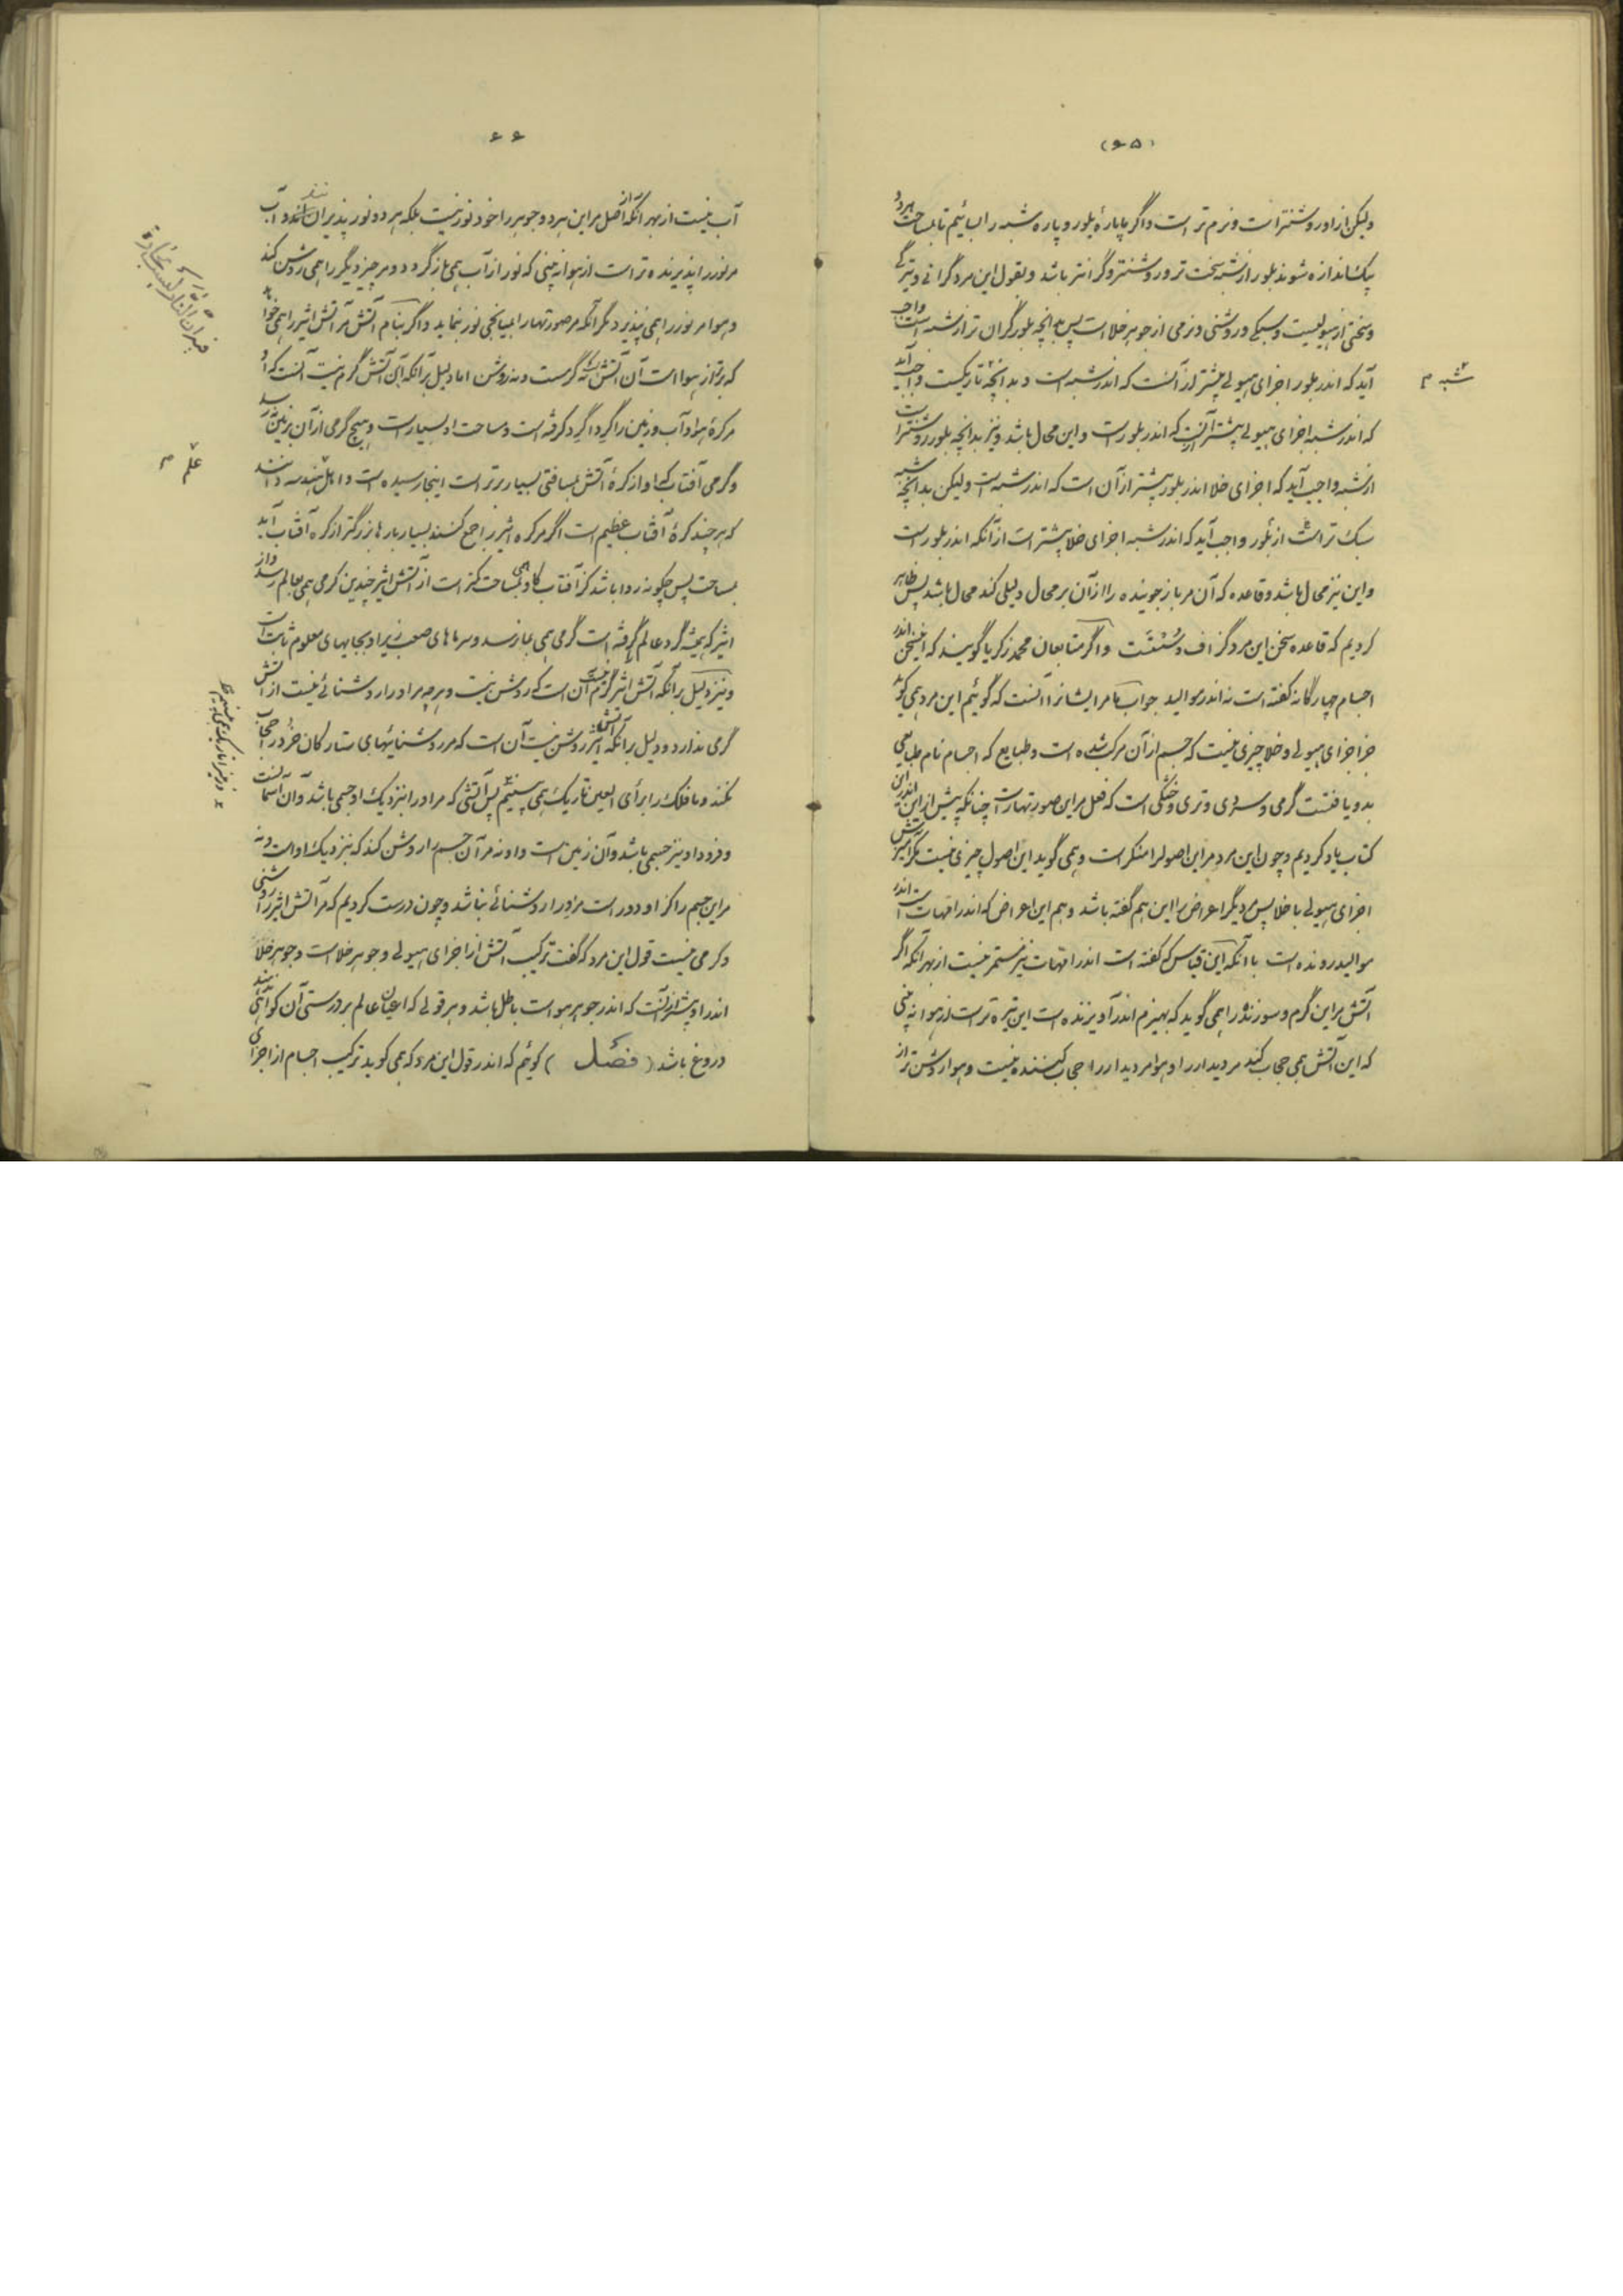 (۶۵)
ولیکن از او روشنتر است و نرم تر است و اگر ما پارهٔ بلور و پاره شبه را بسائیم تا بمساحت هر دو
یک اندازه شوند بلور از شبه سخت تر و روشنتر و گرانتر باشد و بقول این مرد گرانی و تیرگی
و سختی از هیولیست و سبکی و روشنی و نرمی از جوهر خلا است پس بدانچه بلور گران تر از شبه است واجب
آید که اندر بلور اجزای هیولی بیشتر از آنست که اندر شبه است و بدانچه تاریکست واجب آید
که اندر شبه اجزای هیولی بیشتر از آنست که اندر بلور است و این محال باشد و نیز بدانچه بلور روشنتر است
از شبه واجب آید که اجزای خلا اندر بلور بیشتر از آن است که اندر شبه است ولیکن بدانچه شبه
سبک تر است از بلور واجب آید که اندر شبه اجزای خلا بیشتر است از آنکه اندر بلور است
و این نیز محال باشد و قاعده که آن مر باز جوینده را از آن بر محال دلیلی کند محال باشد پس ظاهر
کردیم که قاعده سخن این مرد گزاف و سست است و اگر متابعان محمد زکریا گویند که این سخن اندر
اجسام چهارگانه گفته است نه اندر موالید جواب ما مر ایشانرا آنست که گوئیم این مرد همی گوید
جز اجزای هیولی و خلا چیزی نیست که جسم از آن مرکب شده است و طبایع که اجسام نام طبایعی
بدو یافتست گرمی و سردی و تری و خشکی است که فعل مر این صورتهاراست چنانکه پیش از این اندر این
کتاب یاد کردیم و چون این مرد مر این اصول را منکر است و همی گوید این اصول چیزی نیست مگر آمیزش
اجزای هیولی با خلا پس مر دیگر اعراض را این هم گفته باشد و هم این اعراض که اندر امهات است اندر
موالید رونده است با آنکه این قیاس که گفته است اندر امهات نیز مستمر نیست از بهر آنکه اگر
آتش مر این گرم و سوزنده را همی گوید که بهیزم اندر آویزنده است این تیره تر است از هوا نه بینی
که این آتش همی حجاب کند مر دیدار را و هوا مر دیدار را حجاب کننده نیست و هوا روشن تر از
شبه م
۶۶
آب نیست از بهر آنکه از اصل مر این هر دو جوهر را خود نور نیست بلکه هر دو نور پذیرانند و آب
مر نور را پذیرنده تر است از هوا نه بینی که نور از آب همی باز گردد و مر چیز دیگر را همی روشن کند
و هوا مر نور را همی نپذیرد مگر آنکه مر صورتها را بمیانجی نور بنماید و اگر بنام آتش مر آتش اثیر را همی خواهد
که برتر از هوا است آن آتش نه گرمست و نه روشن اما دلیل بر آنکه آن آتش گرم نیست آنست که او
مر کرهٔ هوا و آب و زمین را گرد اگرد گرفته است و مساحت او بسیار است و هیچ گرمی از آن بزمین نرسد
و گرمی آفتاب که او از کرهٔ آتش بمسافتی بسیار برتر است اینجا رسیده است و اهل هندسه دانند
که هر چند کرهٔ آفتاب عظیم است اگر مر کره اثیر را جمع کنند بسیار بارها بزرگتر از کره آفتاب آید
بمساحت پس چگونه روا باشد کز آفتاب که او بمساحت کمتر است از آتش اثیر چندین گرمی همی بعالم رسد و از
اثیر که همیشه گرد عالم گرفته است گرمی همی بما نرسد و سرماهای صعب زیر او بجایهای معلوم ثابت است
و نیز دلیل بر آنکه آتش اثیر گرم نیست آن است که روشن نیست و هر چه مر او را روشنائی نیست از آتش
گرمی ندارد و دلیل بر آنکه آتش اثیر روشن نیست آن است که مر روشنائیهای ستارگان خرد را حجاب
نکند و ما فلک را برأی العین تاریک همی بینیم پس آتشی که مر او را نزدیک او جسمی باشد و آن آسمانست
و فرود او نیز جسمی باشد و آن زمین است و او نه مر آن جسم را روشن کند که نزدیک او است و نه
مر این جسم را کز او دور است مر او را روشنائی نباشد و چون درست کردیم که مر آتش اثیر را روشنی
و گرمی نیست قول این مرد که گفت ترکیب آتش از اجزای هیولی و جوهر خلا است و جوهر خلا
اندر او بیشتر از آنست که اندر جوهر هوا است باطل باشد و هر قولی که اعیان عالم بر درستی آن گواهی ندهد
دروغ باشد ( فصل ) گوئیم که اندر قول این مرد که همی گوید ترکیب اجسام از اجزای
علم م